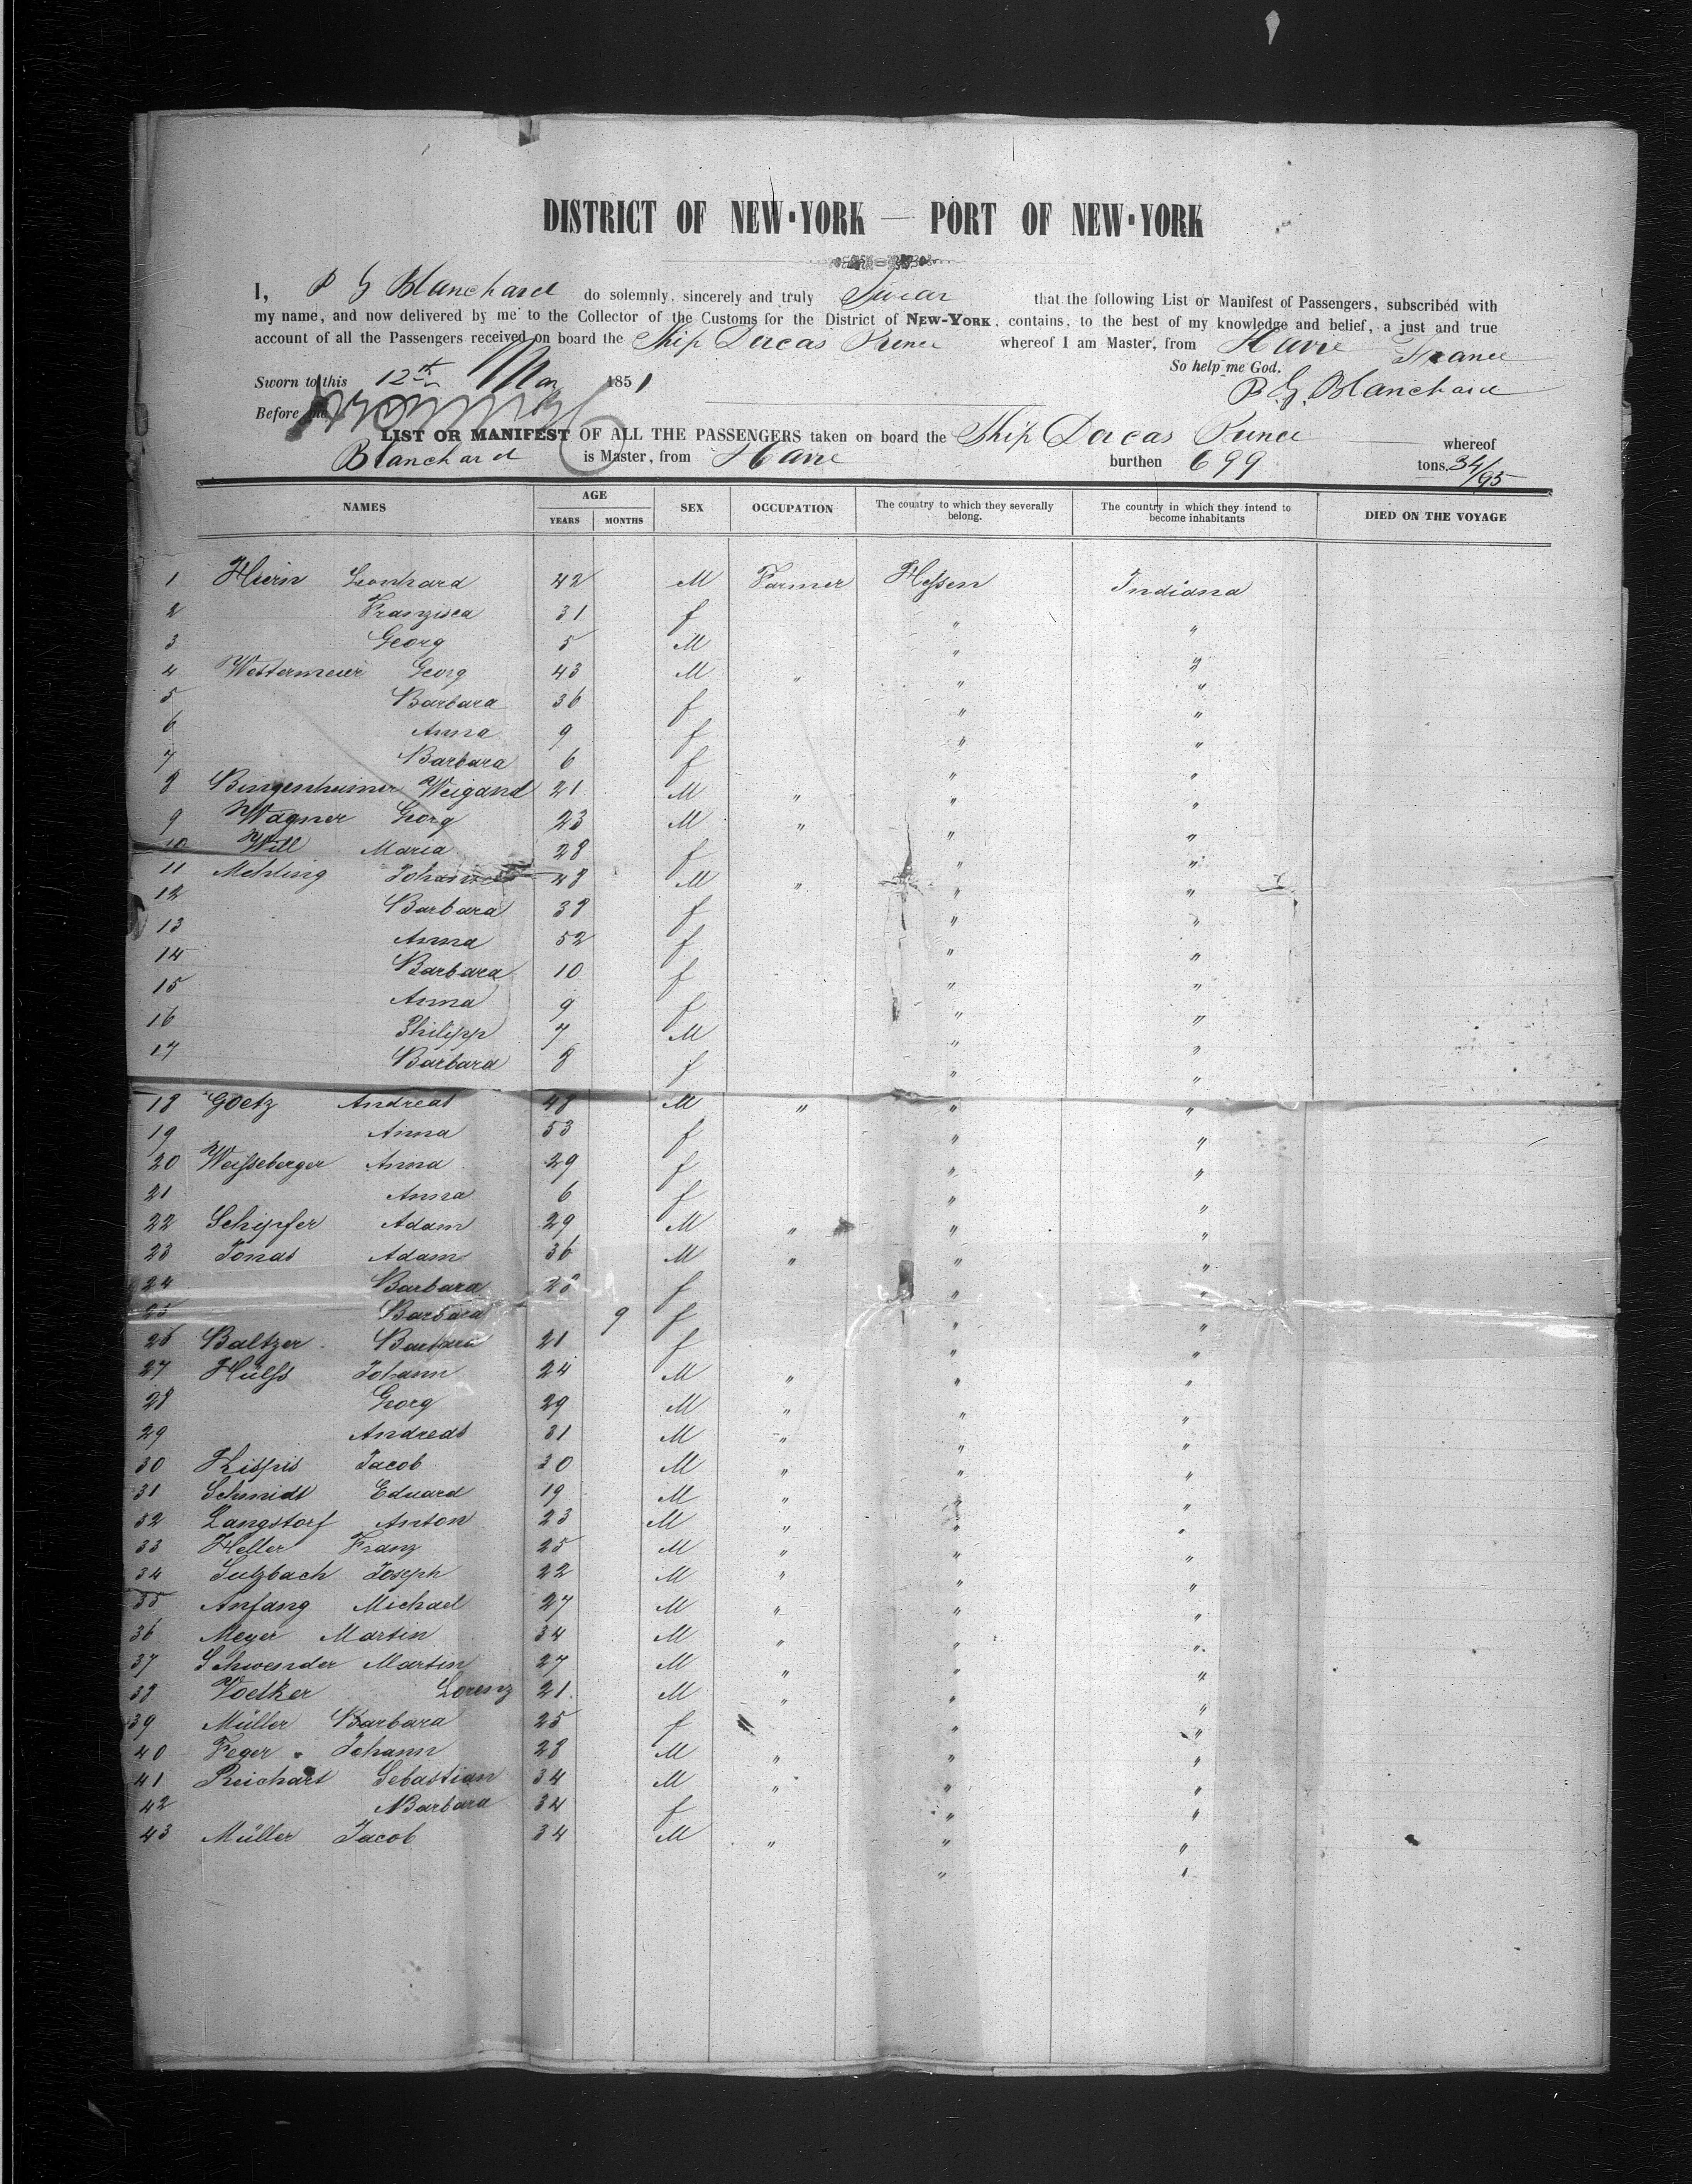 DISTRICT OF NEW-YORK — PORT OF NEW-YORK
I, P G Blanchard do solemnly, sincerely and truly Swear that the following List or Manifest of Passengers, subscribed with
my name, and now delivered by me to the Collector of the Customs for the District of NEW-YORK, contains, to the best of my knowledge and belief, a just and true
account of all the Passengers received on board the Ship Dorcas Prince whereof I am Master, from Havre France
So help me God.
Sworn to this 12th May 1851
P. G. Blanchard
Before me
LIST OR MANIFEST OF ALL THE PASSENGERS taken on board the Ship Dorcas Prince whereof
Blanchard is Master, from Havre burthen 699 tons. 34/95
NAMES AGE SEX OCCUPATION The country to which they severally belong. The country in which they intend to become inhabitants DIED ON THE VOYAGE
YEARS MONTHS
1 Leonhard 42 M Farmer Hessen Indiana
2 Franzisca 31 f " "
3 Georg 5 M " "
4 Westermeier Georg 43 M " " "
5 Barbara 36 f " "
6 Anna 9 f " "
7 Barbara 6 f " "
8 Bingenheimer Weigand 21 M " " "
9 Wagner Georg 23 M " " "
10 Will Maria 28 f " "
11 Mehling Johannes 48 M " " "
12 Barbara 38 f " "
13 Anna 52 f " "
14 Barbara 10 f " "
15 Anna 9 f " "
16 Philipp 7 M " "
17 Barbara 8 f " "
18 Goetz Andreas 48 M " " "
19 Anna 53 f " "
20 Weisseberger Anna 29 f " "
21 Anna 6 f " "
22 Schipfer Adam 29 M " " "
23 Jonas Adam 36 M " " "
24 Barbara 28 f " "
25 Barbara 9 f " "
26 Baltzer Barbara 21 f " "
27 Hülss Johann 24 M " " "
28 Georg 29 M " " "
29 Andreas 31 M " " "
30 Jacob 30 M " " "
31 Schmidt Eduard 19 M " " "
32 Langstorf Anton 23 M " " "
33 Heller Franz 25 M " " "
34 Sulzbach Joseph 22 M " " "
35 Anfang Michael 27 M " " "
36 Meyer Martin 34 M " " "
37 Schwender Martin 27 M " " "
38 Voelker Lorenz 21 M " " "
39 Müller Barbara 25 f " "
40 Feger Johann 28 M " " "
41 Reichart Sebastian 34 M " " "
42 Barbara 34 f " "
43 Müller Jacob 34 M " " "